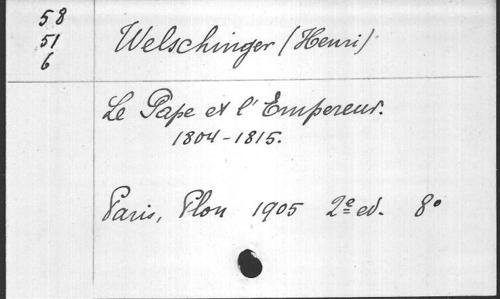 58
51
6
Welschinger (Henri)
Le Pape et l'Empereur.
1804-1815.
Paris, Plon 1905 2e ed. 8°